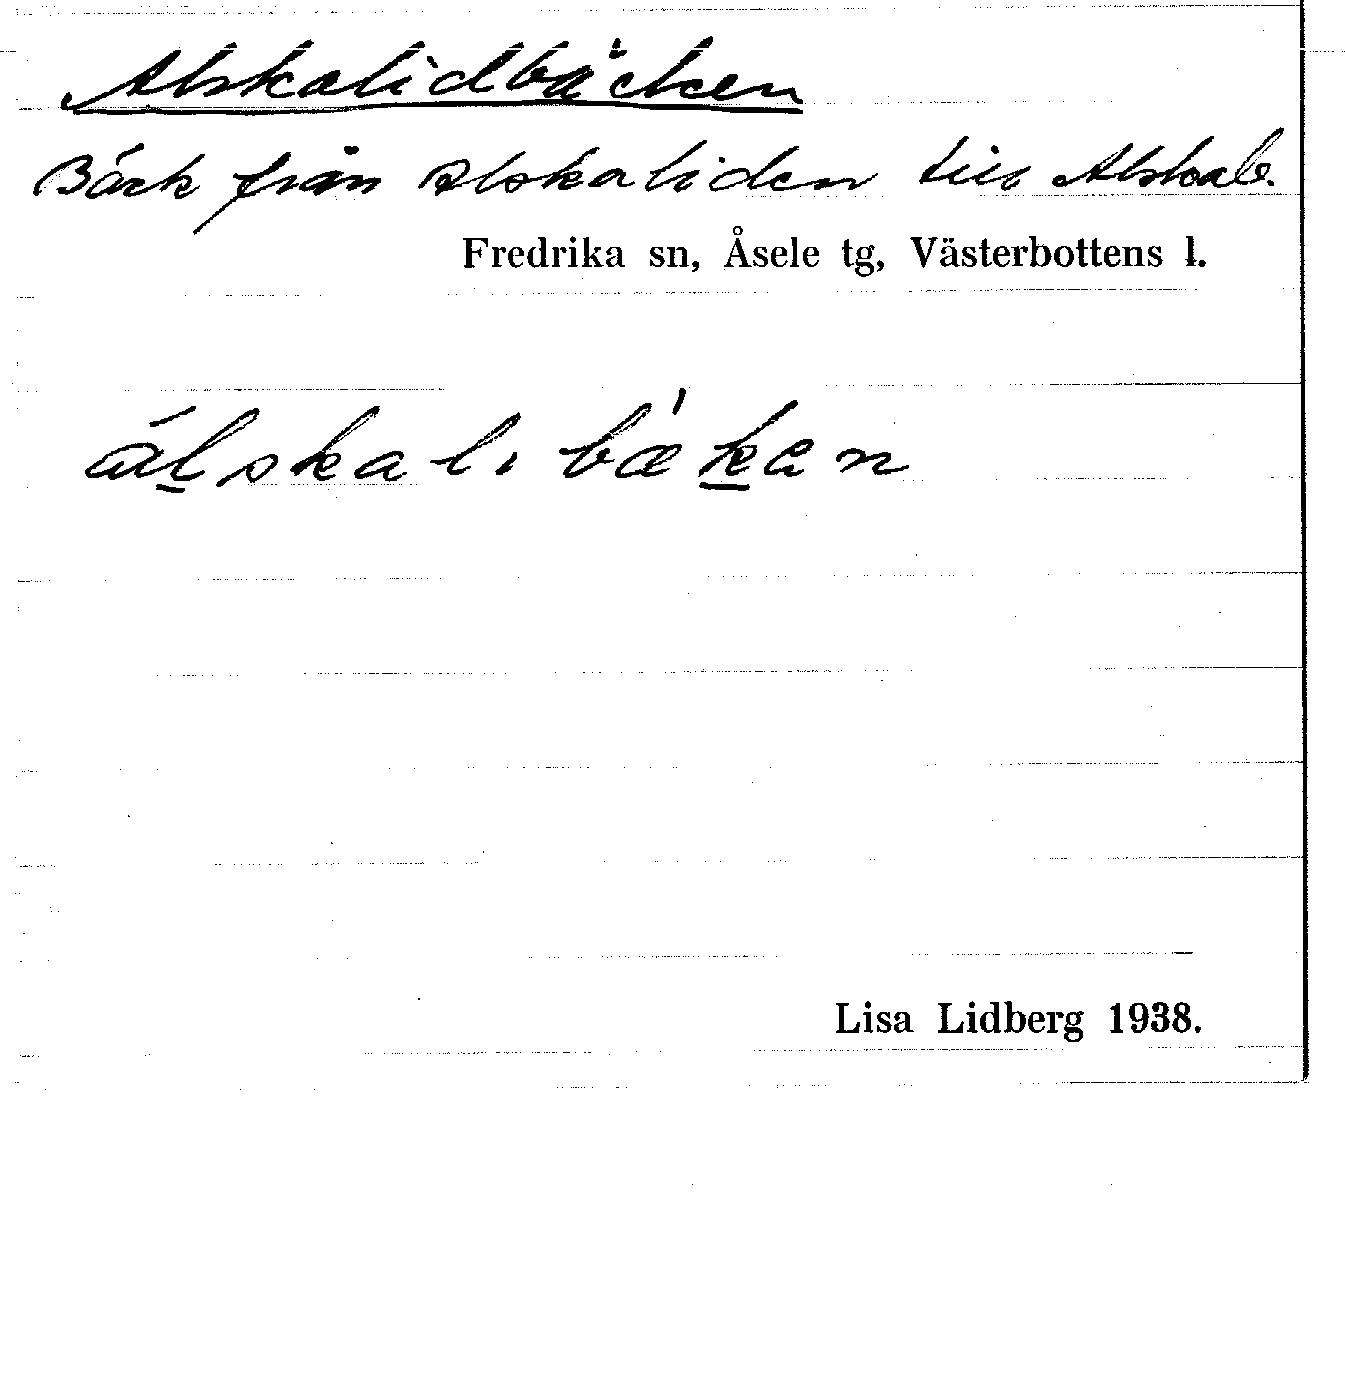 Alskalidbäcken
Bäck från Alskaliden till Alskab.
Fredrika sn, Åsele tg, Västerbottens l.
álskali bækan
Lisa Lidberg 1938.